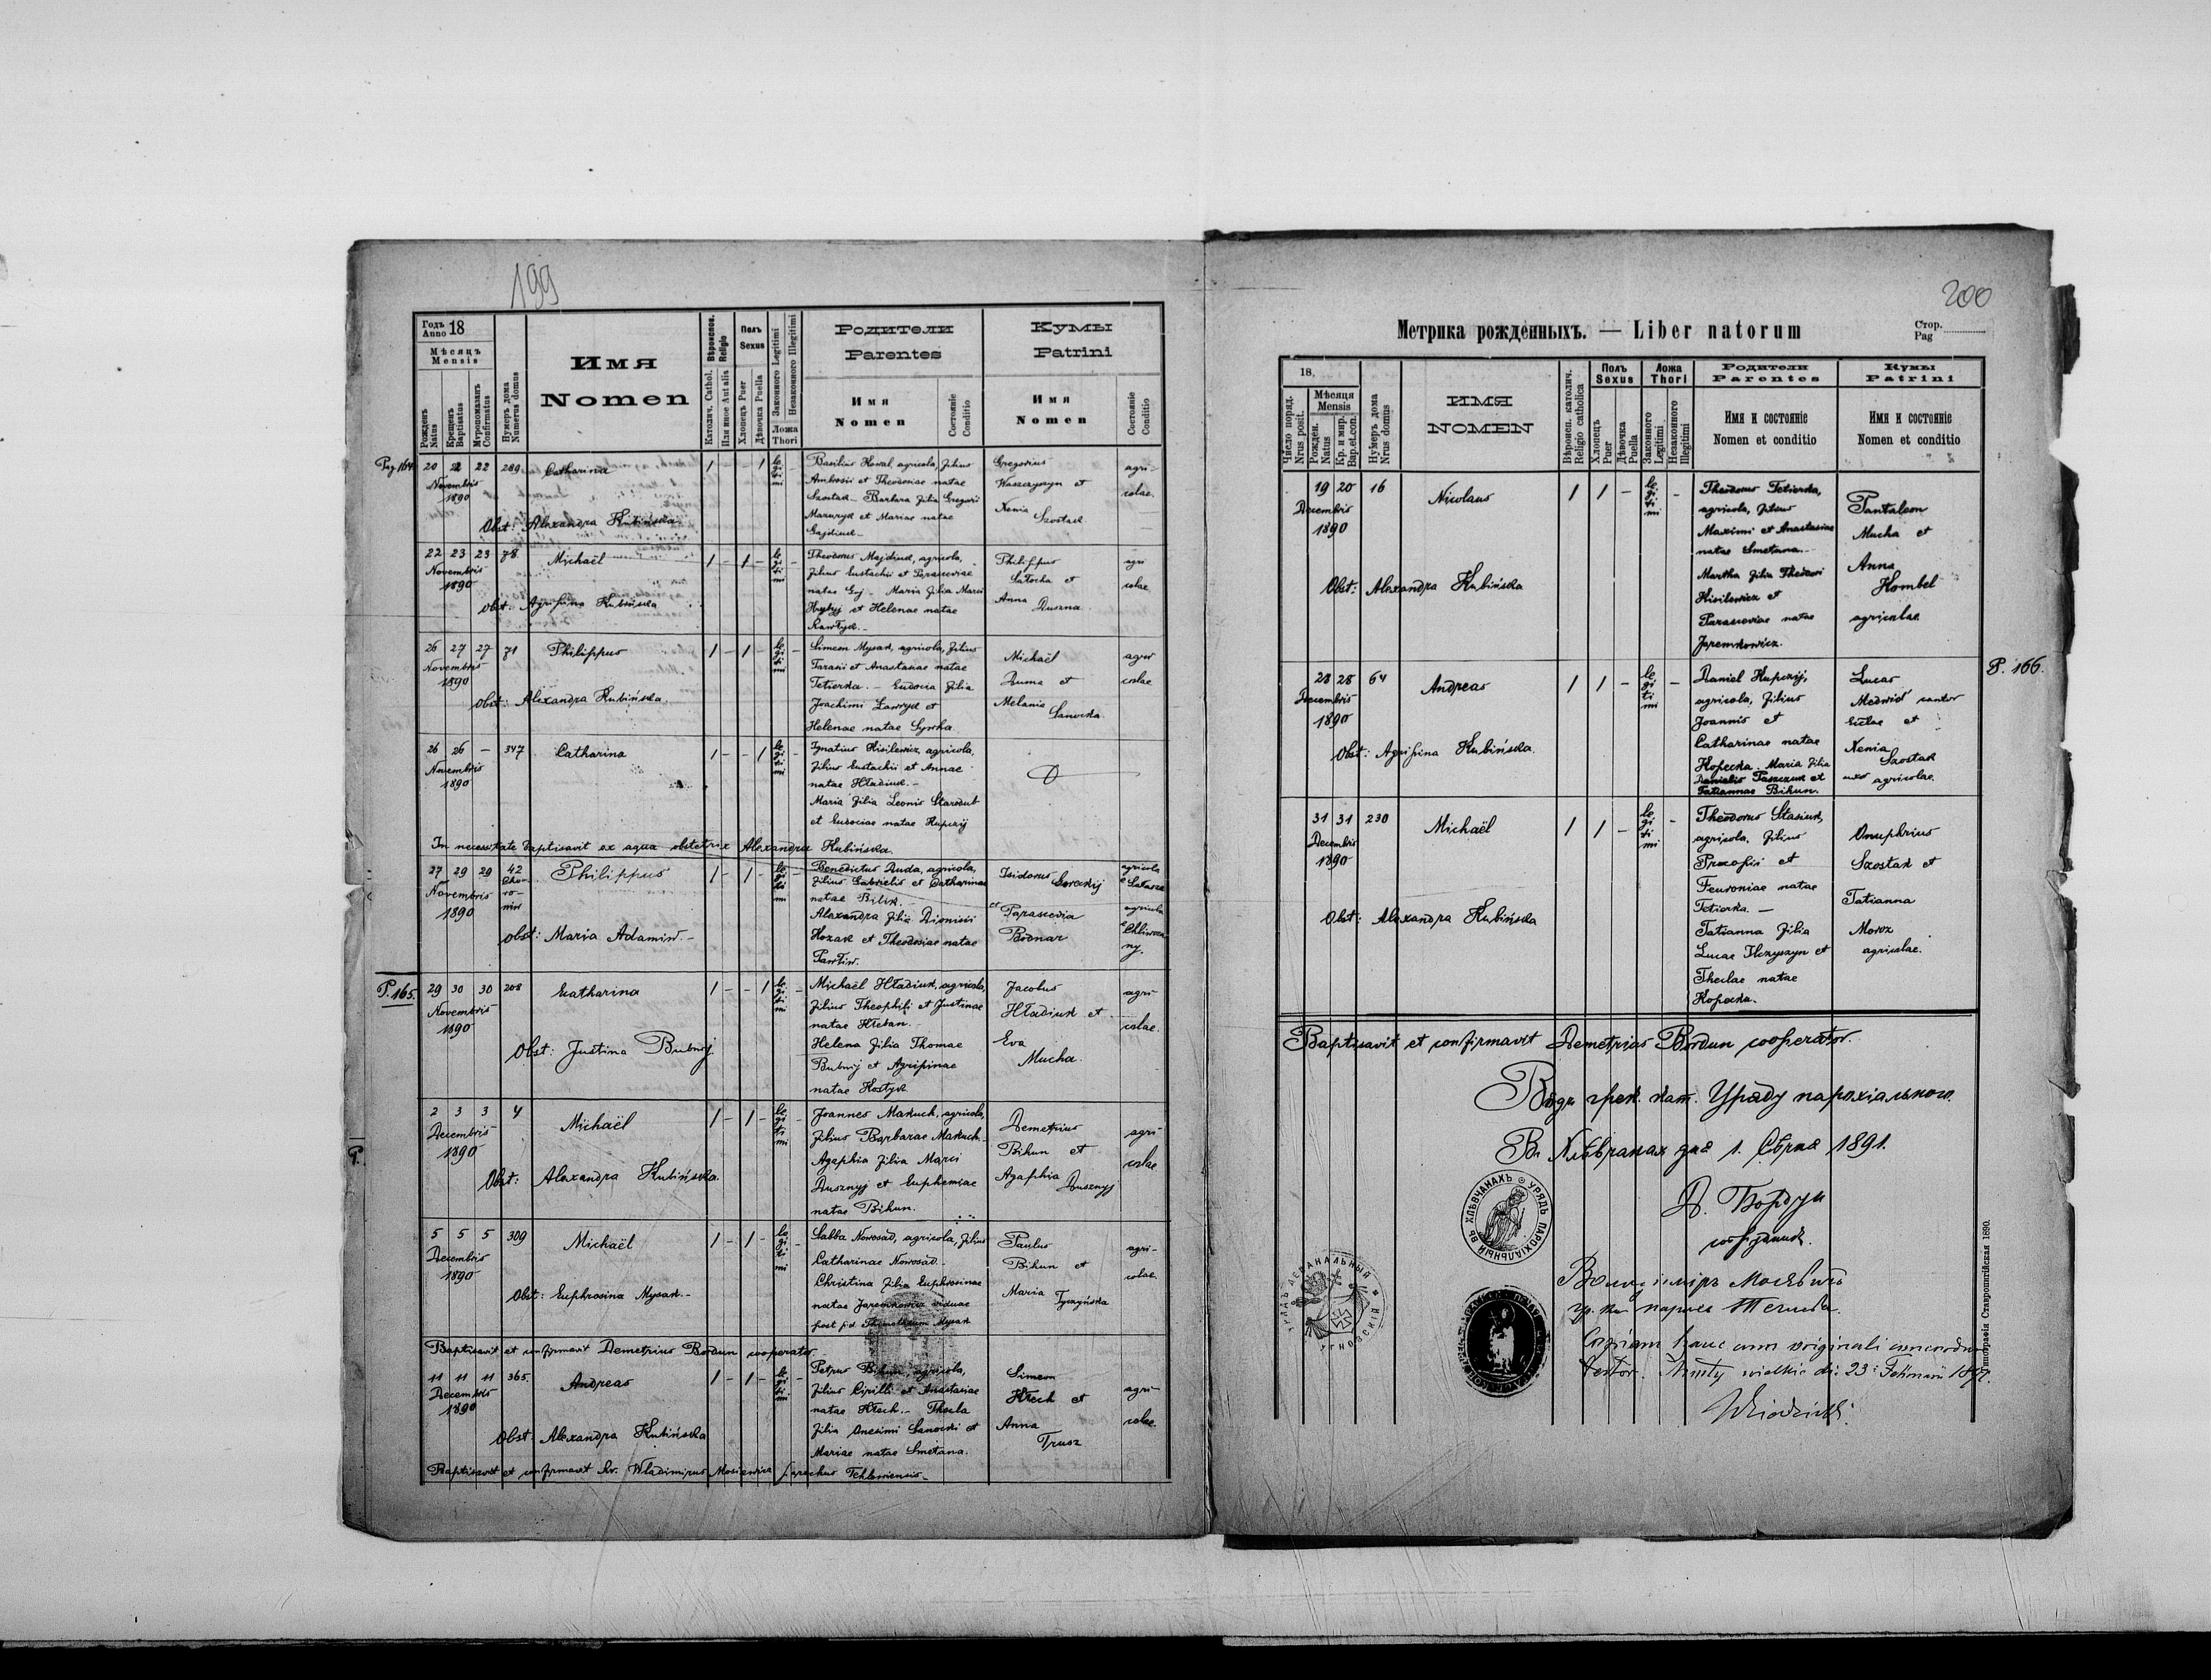 199
Годъ
Anno 18
Мѣсяцъ
Mensis
Рожденъ
Natus
Крещенъ
Baptisatus
Мѵропомазанъ
Confirmatus
Нумеръ дома
Numerus domus
Имя
Nomen
Вѣроиспов.
Religio
Католич. Cathol.
Или иное Aut alia
Полъ
Sexus
Хлопецъ Puer
Дѣвочка Puella
Законного Legitimi
Незаконного Illegitimi
Ложа
Thori
Родители
Parentes
Имя
Nomen
Состояніе
Conditio
Кумы
Patrini
Имя
Nomen
Состояніе
Conditio
Pag. 164
20 22 22 289 Catharina 1 - - 1 legitimi -
Novembris
1890
Obst: Alexandra Kubińska
Basilius Kowal, agricola, filius
Ambrosii et Theodosiae natae
Szostak – Barbara filia Gregorii
Mazuryk et Mariae natae
Gajdiuk –
Gregorius
Waszczyszyn et
Xenia
Szostak
agri-
colae
22 23 23 78 Michaël 1 - 1 - legitimi -
Novembris
1890
Obst: Agrifina Kubińska
Theodorus Majdiuk, agricola,
filius Eustachii et Parasceviae
natae Guj – Maria filia Marci
et Helenae natae
Pawłyk –
Philippus
Łatocha et
Anna
Duszna
agri
colae
26 27 27 71 Philippus 1 - 1 - legitimi -
Novembris
1890
Obst: Alexandra Kubińska
Simeon Mysak, agricola, filius
Tarasii et Anastasiae natae
Tetierka. – Eudocia filia
Joachimi Ławryk et
Helenae natae Syrka
Michaël
Duma et
Melania
Sanocka
agri
colae
26 26 – 347 Catharina 1 - - 1 legitimi -
Novembris
1890
Ignatius Kisilewicz, agricola,
filius Eustachii et Annae
natae Hładiuk –
Maria filia Leonis Starodub
et Eudociae natae Kupczij
In necessitate baptisavit ex aqua obstetrix Alexandra Kubińska
27 29 29 42 Philippus 1 - 1 - legitimi -
Novembris
1890
Obst: Maria Adamiw. –
Benedictus Duda, agricola,
filius Gabrielis et Catharinae
natae Bilik. –
Alexandra filia Dionisii
Kozak et Theodosiae natae
Pawliw.
Isidorus Goreckij
et Parascevia
Bodnar
agricola
agricola
P. 165.
29 30 30 208 Catharina 1 - - 1 legitimi -
Novembris
1890
Obst: Justina Bubnij
Michaël Hładiuk, agricola,
filius Theophili et Justinae
natae Hreban. –
Helena filia Thomae
Bubnij et Agrifinae
natae Kostyk
Jacobus
Hładiuk et
Eva
Mucha
agri-
colae.
2 3 3 4 Michaël 1 - 1 - legitimi -
Decembris
1890
Obst: Alexandra Kubińska
Joannes Makuch, agricola,
filius Barbarae Makuch –
Agaphia filia Marci
Dusznyj et Euphemiae
natae Bihun.
Demetrius
Bihun et
Agaphia
Dusznyj
agri-
colae
P.
5 5 5 309 Michaël 1 - 1 - legitimi -
Decembris
1890
Obst: Euphrosina Mysak. –
Sabba Nowosad, agricola, filius
Catharinae Nowosad –
Christina filia Euphrosinae
natae Jaremkowicz viduae
post p.d. Mysak
Paulus
Bihun et
Maria
Tyczyńska
agri-
colae
Baptisavit et confirmavit Demetrius Bordun cooperator.
11 11 11 365. Andreas 1 - 1 - legitimi -
Decembris
1890
Obst: Alexandra Kubińska
Petrus Bihun, agricola,
filius Cirilli et Anastasiae
natae Hrech – Thecla
filia Onesimi Sanocki et
Mariae natae Smetana.
Simeon
Hrech et
Anna
Trusz
agri-
colae.
Baptisavit et confirmavit Wladimirus parochus Tehlowiensis –
200
Метрика рожденныхъ. — Liber natorum
Стор.
Pag
18
Число поряд.
Nrus posit.
Мѣсяця
Mensis
Рожден.
Natus
Кр. и мир.
Bap. et con.
Нумеръ дома
Nrus domus
ИМЯ
NOMEN
Вѣроисп. католич.
Religio catholica
Полъ
Sexus
Хлопецъ
Puer
Дѣвочка
Puella
Ложа
Thori
Законного
Legitimi
Незаконного
Illegitimi
Родители
Parentes
Имя и состояніе
Nomen et conditio
Кумы
Patrini
Имя и состояніе
Nomen et conditio
19 20 16 Nicolaus 1 1 - legitimi -
Decembris
1890
Obst: Alexandra Kubińska
Theodorus Tetierka,
agricola, filius
Maximi et Anastasiae
natae Smetana. –
Martha filia Theodori
Kisilewicz et
Parasceviae natae
Jaremkowicz.
Pantaleon
Mucha et
Anna
Kombel
agricolae
P. 166.
28 28 64 Andreas 1 1 - legitimi -
Decembris
1890
Obst: Agrifina Kubińska
Daniel Kupczij,
agricola, filius
Joannis et
Catharinae natae
Kopecka. Maria filia
Danielis Paszczuk et
Tatiannae Bihun.
Lucas
Medwid cantor
et
Xenia
Szostak
uxor agricolae.
31 31 230 Michaël 1 1 - legitimi -
Decembris
1890
Obst: Alexandra Kubińska
Theodorus Stasiuk,
agricola, filius
Procopii et
Fevroniae natae
Tetierka. –
Tatianna filia
Lucae Ilczyszyn et
Theclae natae
Kopecka.
Onuphrius
Szostak et
Tatianna
Moroz
agricolae.
Baptisavit et confirmavit Demetrius Bordun cooperator.
Водъ грек. кат. Уряду парохіального
Въ Хлѣвчанах дня 1. 1891.
Д. Бордун
сотрудник.
УРЯДЪ ПАРОХІАЛЬНЫЙ ВЪ ХЛѢВЧАНАХЪ
УРЯДЪ ДЕКАНАЛЬНЫЙ УГНОВСКІЙ
Copiam hanc cum originali concordare
testor.
Типографія Ставропигійская 1890.